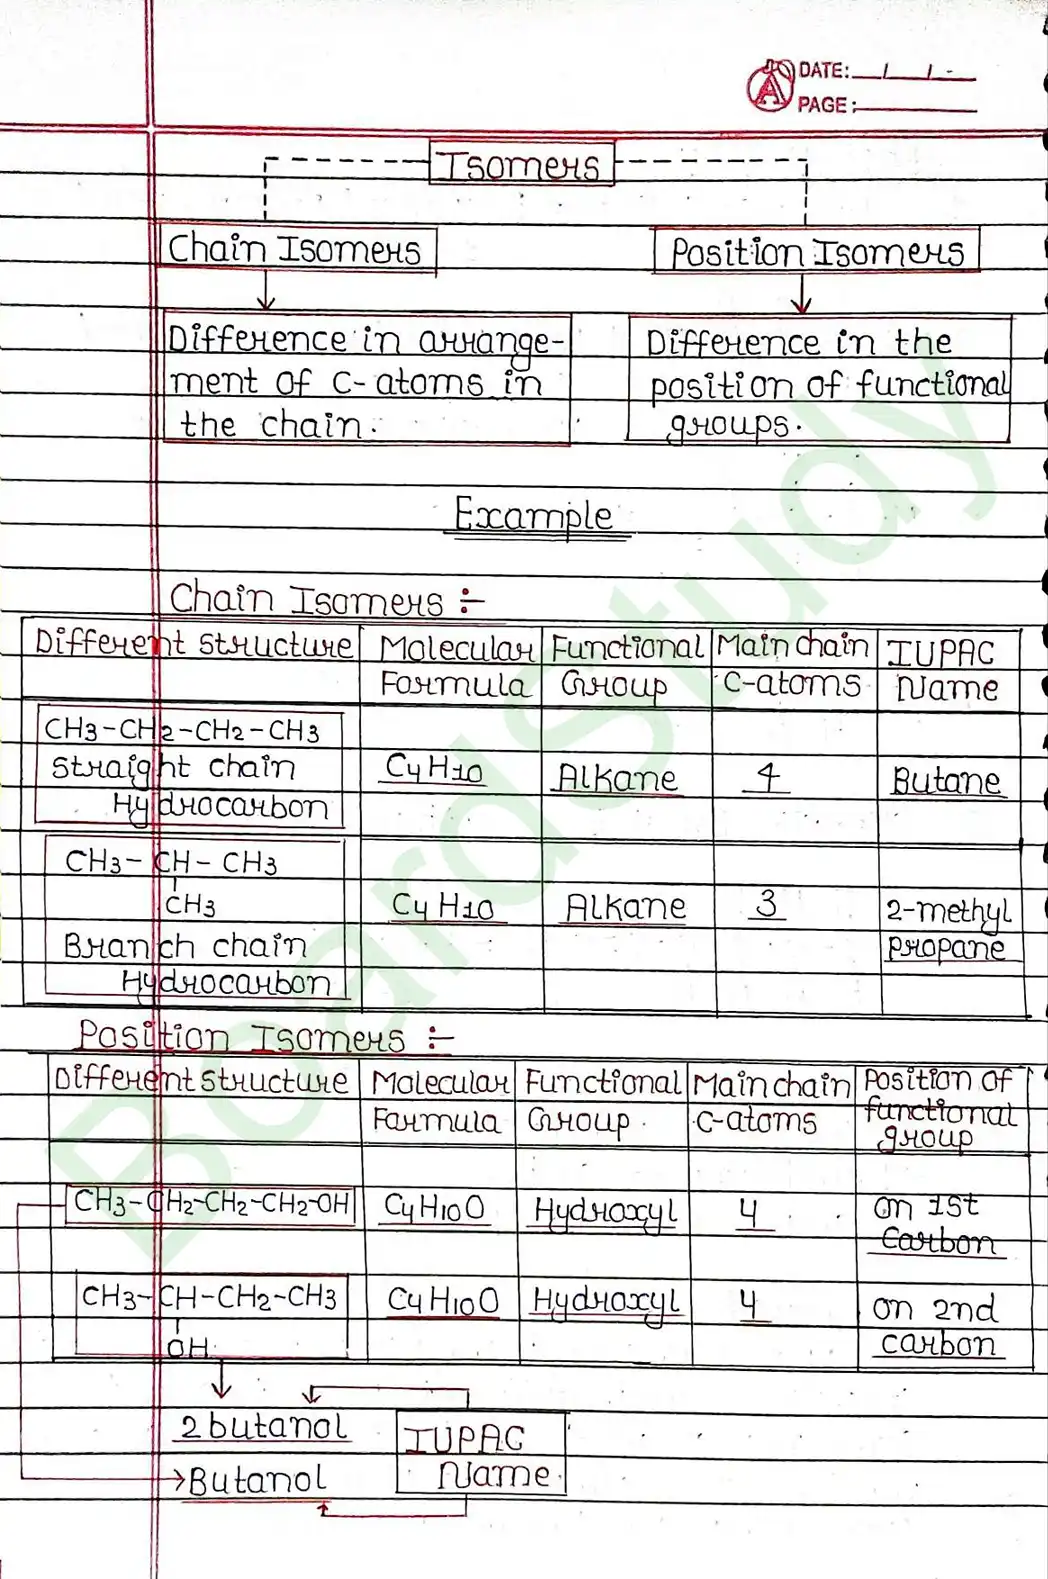 DATE: / / -
PAGE:
Isomers
Chain Isomers
Position Isomers
Difference in arrange-
ment of C-atoms in
the chain.
Difference in the
position of functional
groups.
Example
Chain Isomers :-
Different structure
Molecular
Formula
Functional
Group
Main chain
C-atoms
IUPAC
Name
CH3-CH2-CH2-CH3
Straight chain
Hydrocarbon
C4H10
Alkane
4
Butane
CH3-CH-CH3
CH3
Branch chain
Hydrocarbon
C4H10
Alkane
3
2-methyl
propane
Position Isomers :-
Different structure
Molecular
Formula
Functional
Group.
Main chain
C-atoms
Position of
functional
group
CH3-CH2-CH2-CH2-OH
C4H10O
Hydroxyl
4
on 1st
Carbon
CH3-CH-CH2-CH3
OH
C4H10O
Hydroxyl
4
on 2nd
carbon
2butanol
Butanol
IUPAC
Name
BoardStudy